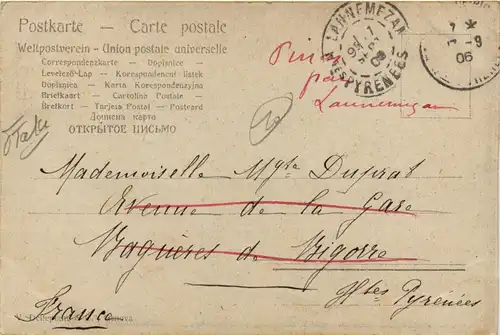 Postkarte - Carte postale
Weltpostverein - Union postale universelle
Correspondenzkarte — Dopisnice —
Levelezö-Lap — Korespondenční lístek
Dopisnica — Karta Korespondencyjna
Briefkaart — Cartolina Postale —
Brefkort — Tarjeta Postal — Postcard
Дописна карта
ОТКРЫТОЕ ПИСЬМО
LANNEMEZAN
Htes PYRENEES
06
par
Lannemezan
Mademoiselle Mgte Duprat
Avenue de la Gare
Bagnères de Bigorre
Htes Pyrénées
France